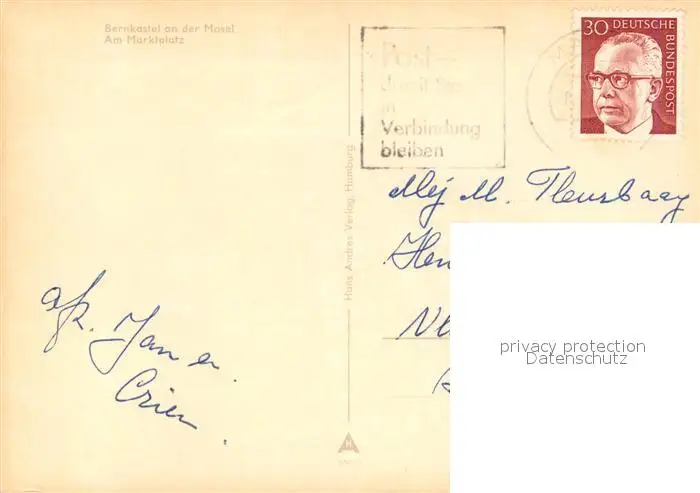 Bernkastel an der Mosel
Am Marktplatz
Post—
damit Sie
in
Verbindung
bleiben
30 DEUTSCHE
BUNDESPOST
Hans Andres Verlag, Hamburg
Mej M.
privacy protection
Datenschutz
afz. Jan en